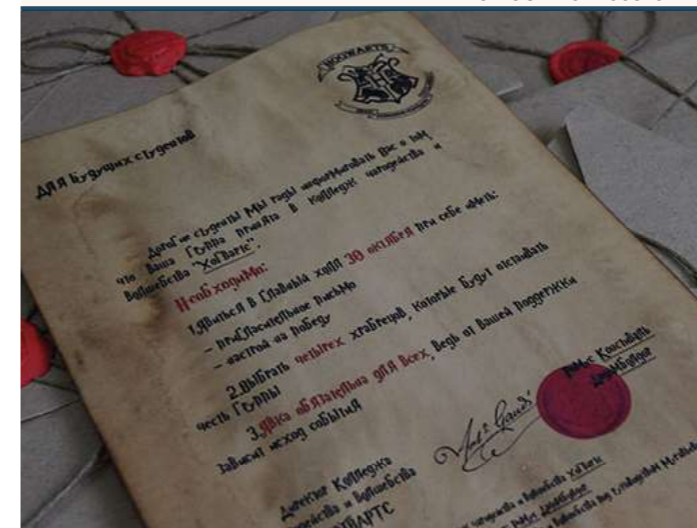 HOGWARTS
ДЛЯ будущих студентов
Дорогие студенты! Мы рады информировать Вас о том,
что Ваша Группа принята в Колледж чародейства и
Волшебства "ХоГВартс".
Необходимо:
1.Явиться в Главный холл 30 октября при себе иметь:
– пригласительное письмо
– настрой на победу
2.Выбрать четырех храбрецов, которые будут отстаивать
честь Группы
3.Явка обязательна для всех, ведь от Вашей поддержки
зависит исход события
Консивуль
Дамблдор
Колледжа
чародейства и Волшебства
ХОГВАРТС
чародейства и Волшебства ХоГВартс
Дамблдор
и Волшебства